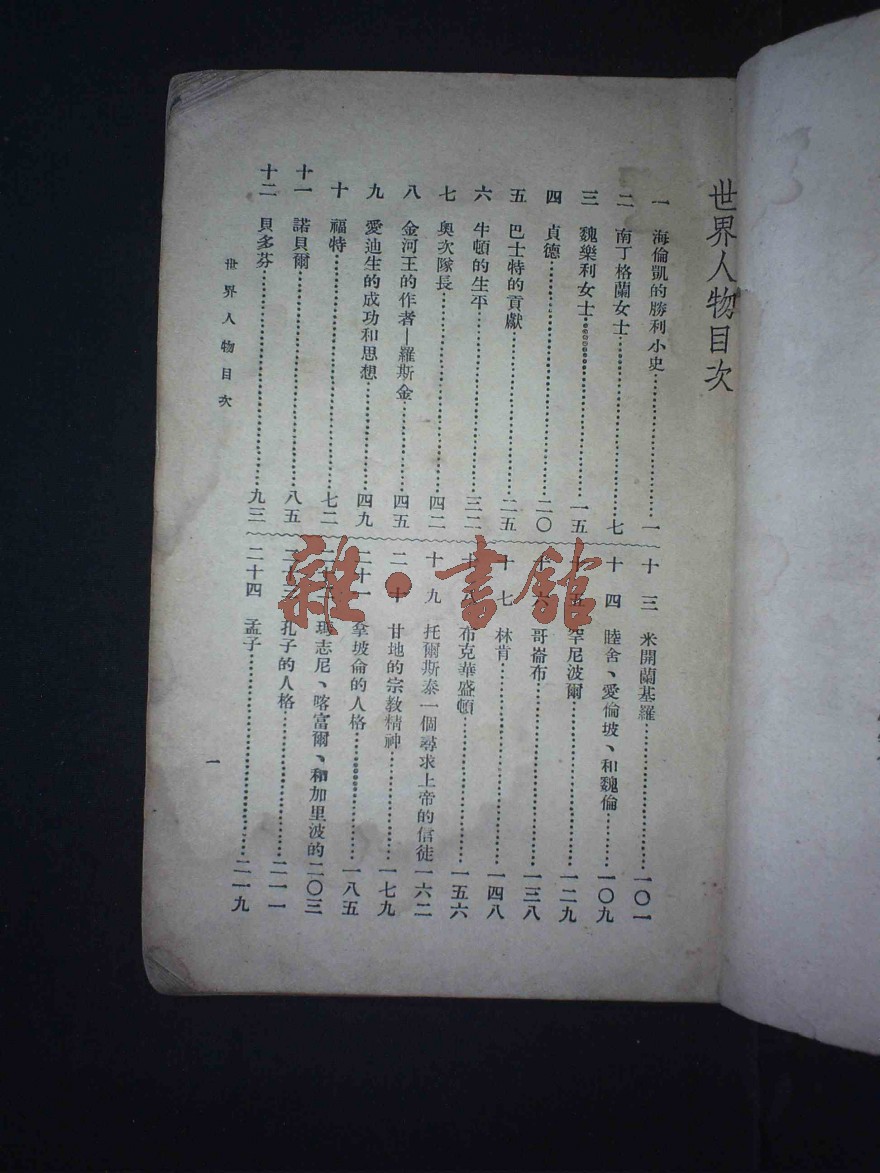 世界人物目次
一 海倫凱的勝利小史…………一
二 南丁格蘭女士…………七
三 魏樂利女士…………一五
四 貞德…………二〇
五 巴士特的貢獻…………二五
六 牛頓的生平…………三二
七 奧次隊長…………四二
八 金河王的作者—羅斯金…………四五
九 愛迪生的成功和思想…………四九
十 福特…………七二
十一 諾貝爾…………八五
十二 貝多芬…………九三
十三 米開蘭基羅…………一〇一
十四 睦舍、愛倫坡、和魏倫…………一〇九
十五 罕尼波爾…………一二九
十六 哥崙布…………一三八
十七 林肯…………一四八
十八 布克華盛頓…………一五六
十九 托爾斯泰一個尋求上帝的信徒 一六二
二十 甘地的宗教精神…………一七九
二十一 拿坡侖的人格…………一八五
二十二 瑪志尼、喀富爾、和加里波的 二〇三
二十三 孔子的人格…………二一一
二十四 孟子…………二一九
世界人物目次
一
雜·書館